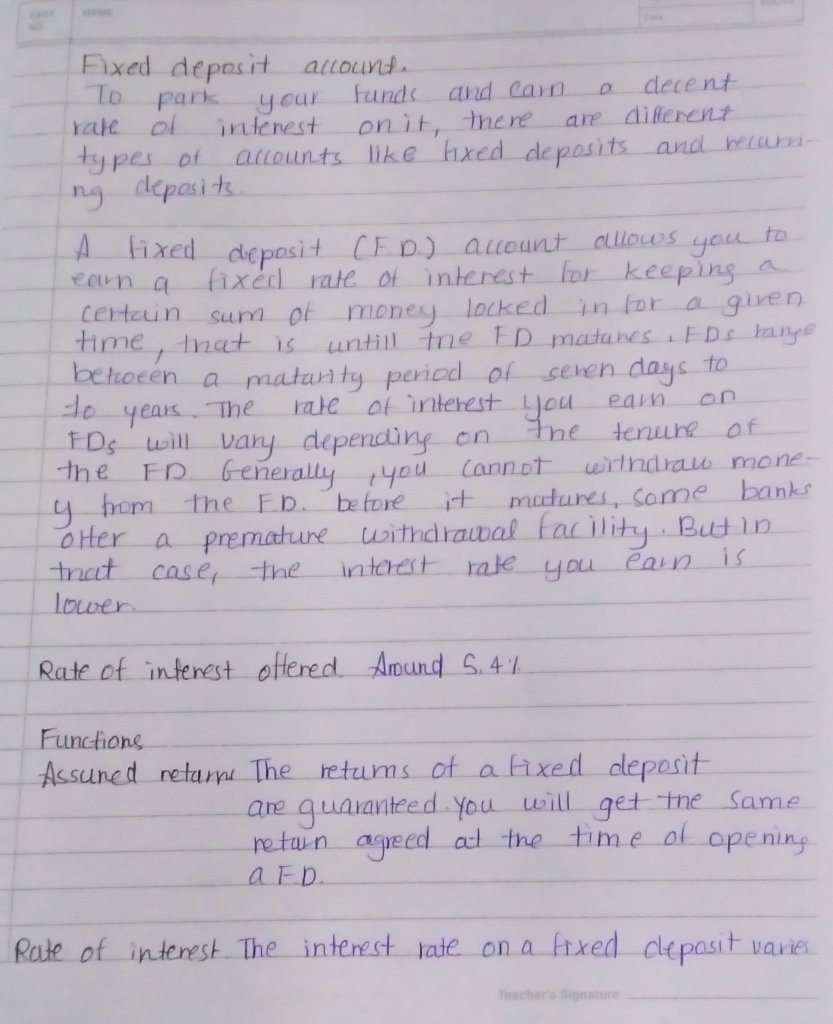 EXPT. NO.
NAME
Date
Fixed deposit account.
To park your funds and earn a decent
rate of interest on it, there are different
types of accounts like fixed deposits and recurri-
ng deposits.
A fixed deposit (F.D.) account allows you to
earn a fixed rate of interest for keeping a
certain sum of money locked in for a given
time, that is untill the FD matures. FDs range
between a maturity period of seven days to
to years. The rate of interest you earn on
FDs will vary depending on the tenure of
the FD Generally, you cannot withdraw mone-
y from the F.D. before it matures, some banks
offer a premature withdrawal facility. But in
that case, the interest rate you earn is
lower
Rate of interest offered Around 5.4%
Functions
Assured returns The returns of a fixed deposit
are guaranteed. You will get the same
return agreed at the time of opening
a F.D.
Rate of interest The interest rate on a fixed deposit varies
Teacher's Signature: